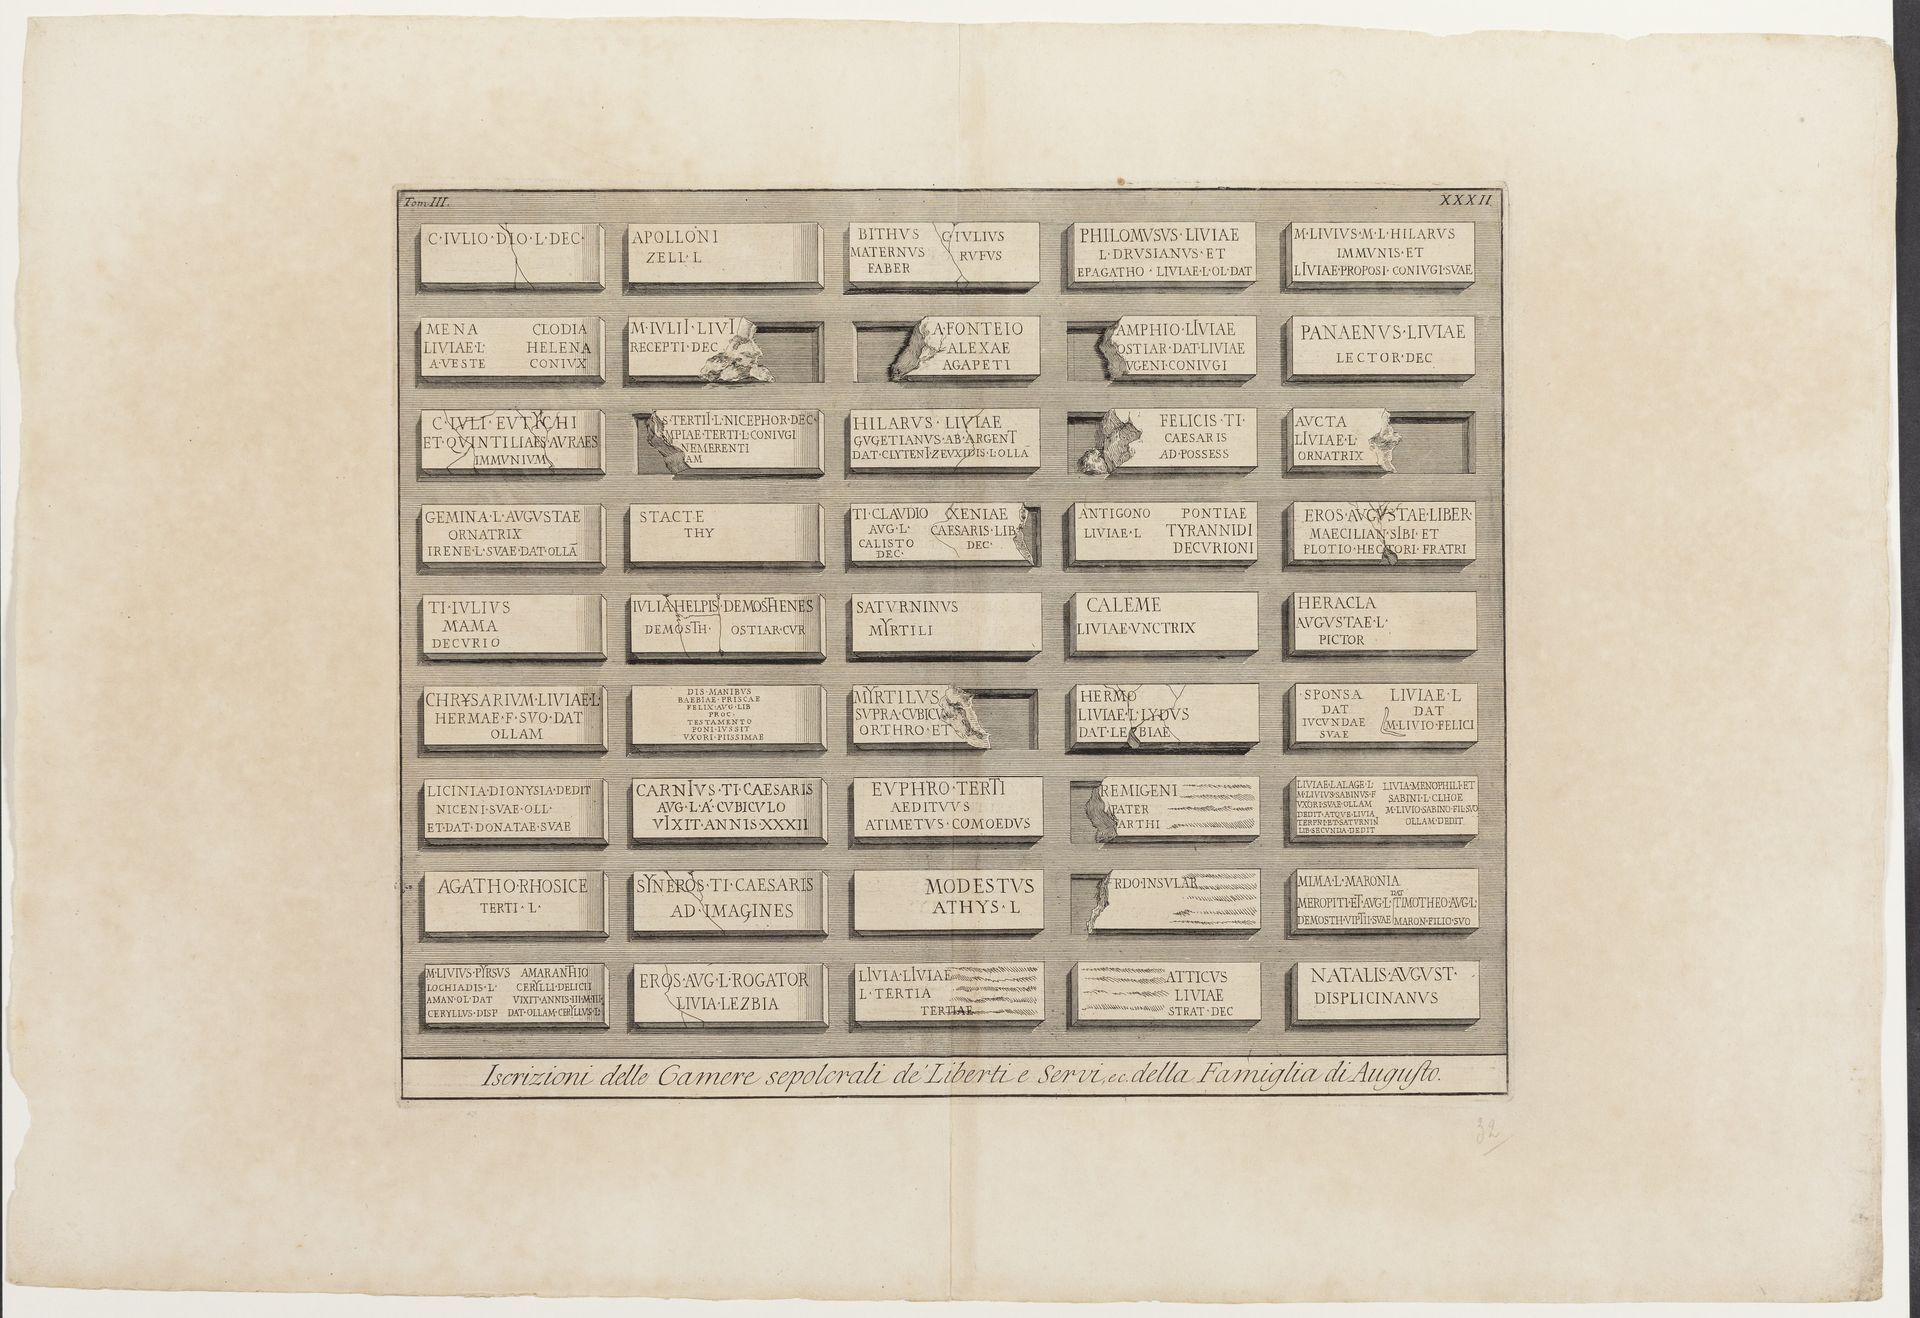 Tom III.
XXXII
C·IVLIO·DIO·L·DEC·
APOLLONI
ZELI·L
BITHVS C·IVLIVS
MATERNVS RVFVS
FABER
PHILOMVSVS·LIVIAE
L·DRVSIANVS·ET
EPAGATHO·LIVIAE·L·OL·DAT
M·LIVIVS·M·L·HILARVS
IMMVNIS·ET
LIVIAE·PROPOSI·CONIVGI·SVAE
MENA CLODIA
LIVIAE·L· HELENA
A·VESTE CONIVX
M·IVLII·LIVI
RECEPTI·DEC
A·FONTEIO
ALEXAE
AGAPETI
AMPHIO·LIVIAE
OSTIAR·DAT·LIVIAE
VGENI·CONIVGI
PANAENVS·LIVIAE
LECTOR·DEC
C·IVLI·EVTYCHI
ET·QVINTILIAES·AVRAES
IMMVNIVM
S·TERTII·L·NICEPHOR·DEC·
MPIAE·TERTI·L·CONIVGI
NEMERENTI
AM
HILARVS·LIVIAE
GVGETIANVS·AB·ARGENT
DAT·CLYTENI·ZEVXIDIS·L·OLLA
FELICIS·TI·
CAESARIS
AD·POSSESS
AVCTA
LIVIAE·L·
ORNATRIX
GEMINA·L·AVGVSTAE
ORNATRIX
IRENE·L·SVAE·DAT·OLLÃ
STACTE
THY
TI·CLAVDIO XENIAE
AVG·L· CAESARIS·LIB
CALISTO DEC·
DEC·
ANTIGONO PONTIAE
LIVIAE·L TYRANNIDI
DECVRIONI
EROS·AVGVSTAE·LIBER·
MAECILIAN·SIBI·ET
PLOTIO·HECTORI·FRATRI
TI·IVLIVS
MAMA
DECVRIO
IVLIA·HELPIS·DEMOSTHENES
DEMOSTH· OSTIAR·CVR
SATVRNINVS
MYRTILI
CALEME
LIVIAE·VNCTRIX
HERACLA
AVGVSTAE·L·
PICTOR
CHRYSARIVM·LIVIAE·L·
HERMAE·F·SVO·DAT
OLLAM
DIS·MANIBVS
BAEBIAE·PRISCAE
FELIX·AVG·LIB
PROC·
TESTAMENTO
PONI·IVSSIT
VXORI·PIISSIMAE
MYRTILVS
SVPRA·CVBICV
ORTHRO·ET
HERMO
LIVIAE·L·LYDVS
DAT·LESBIAE
·SPONSA LIVIAE·L
DAT DAT
IVCVNDAE M·LIVIO·FELICI
SVAE
LICINIA·DIONYSIA·DEDIT
NICENI·SVAE·OLL·
ET·DAT·DONATAE·SVAE
CARNIVS·TI·CAESARIS
AVG·L·A·CVBICVLO
VIXIT·ANNIS·XXXII
EVPHRO·TERTI
AEDITVVS
ATIMETVS·COMOEDVS
REMIGENI
PATER
ARTHI
LIVIAE·LALAGE·L· LIVIA·MENOPHILI·ET
M·LIVIVS·SABINVS·F SABINI·L·CLHOE
VXORI·SVAE·OLLAM M·LIVIO·SABINO·FIL·SVO
DEDIT·ATQVE·LIVIA OLLAM·DEDIT
TERPNI·ET·SATVRNIN
LIB·SECVNDA·DEDIT
AGATHO·RHOSICE
TERTI·L·
SYNEROS·TI·CAESARIS
AD·IMAGINES
MODESTVS
ATHYS·L
RDO·INSVLAR
MIMA·L·MARONIA
DAT
MEROPITI·ET·AVG·L· TIMOTHEO·AVG·L·
DEMOSTH·VIPTII·SVAE MARON·FILIO·SVO
M·LIVIVS·PYRSVS AMARANTHIO
LOCHIADIS·L· CERYLLI·DELICII
AMAN·OL·DAT VIXIT·ANNIS·III·M·III·
CERYLLVS·DISP DAT·OLLAM·CERYLLVS·L·
EROS·AVG·L·ROGATOR
LIVIA·LEZBIA
LIVIA·LIVIAE
L·TERTIA
TERTIAE
ATTICVS
LIVIAE
STRAT·DEC
NATALIS·AVGVST·
DISPLICINANVS
Iscrizioni delle Camere sepolcrali de' Liberti e Servi, ec. della Famiglia di Augusto.
32